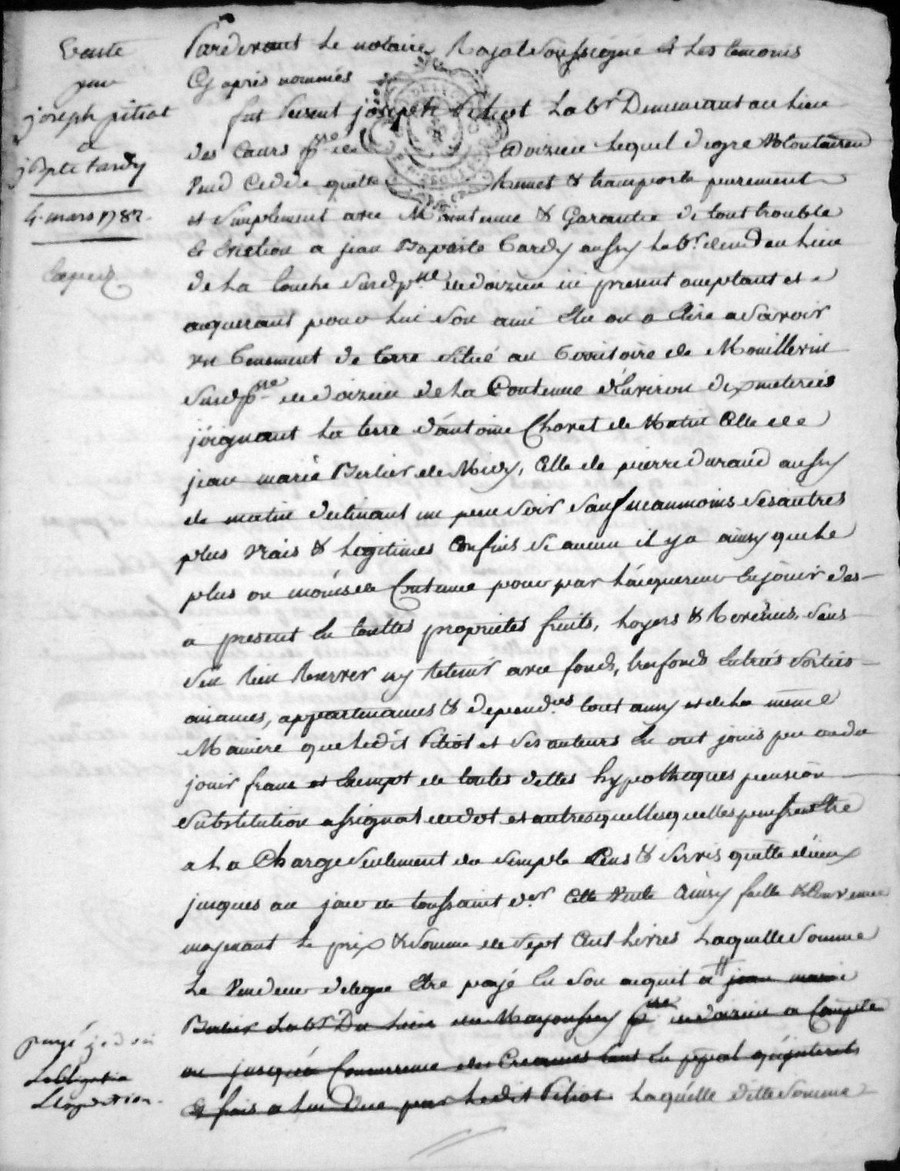 Vente
par
joseph pitiot
a
j Bpte tardy
4 mars 1782
Expedié
Pardevant Le notaire Royal soussigné et Les temoins
Cy après nommés
fut présent joseph Pitiot Lab.r Demeurant au Lieu
des Cours p.sse de Doizieu Lequel de gré volontairem
vend Cedde quitte Remet & transporte purement
et Simplement avec Maintenue & Garantie de tout trouble
& Eviction a jean Baptiste Tardy aussy Lab.r dud Lieu
de La Couche susd p.sse de doizieu ici present acceptant et
acquerant pour Lui son ami Elu ou a Elire a savoir
un tenement de terre situé au territoire de Mouillevin
susd p.sse de doizieu de La Contenue d'Environ dix meterées
joignant La terre d'antoine Choret de Matin Celle de
jean marie Berlier de Midy, Celle de pierre durand aussy
de matin declinant un peu soir sauf neanmoins ses autres
plus vrais & Legitimes Confins si aucun il y a ainsy que Le
plus ou moins de Contenue pour par L'acquereur En jouir des
a present En touttes proprietés fruits, Loyers & Revenus, sans
s'en Rien Reserver ny Retenir avec fonds, tresfonds Entrées sorties
aisances, appartenances & dependces tout ainsy et de La même
Maniere que Ledit Pitiot et ses auteurs En ont jouis peu ou du
jouir franc et Exempt de toutes dettes hypothèques pension
substitution assignat de dot et autres quelles quelles puissent Etre
a La Charge seulement du simple Cens & servis quitte d'iceux
jusques au jour de toussaint d.er Cette vente Ainsy faitte & Convenue
moyenant Le prix & somme de sept Cent Livres Laquelle somme
Le vendeur delegue Etre payé En son acquit a jean marie
Berlier Lab.r Du Lieu de p.sse de doizieu a Compte
ou jusqu'a Concurrence des Creances tant En ppal qu'interets
& frais a Lui Due par Ledit Pitiot Laquelle ditte somme
payé
L'obligation